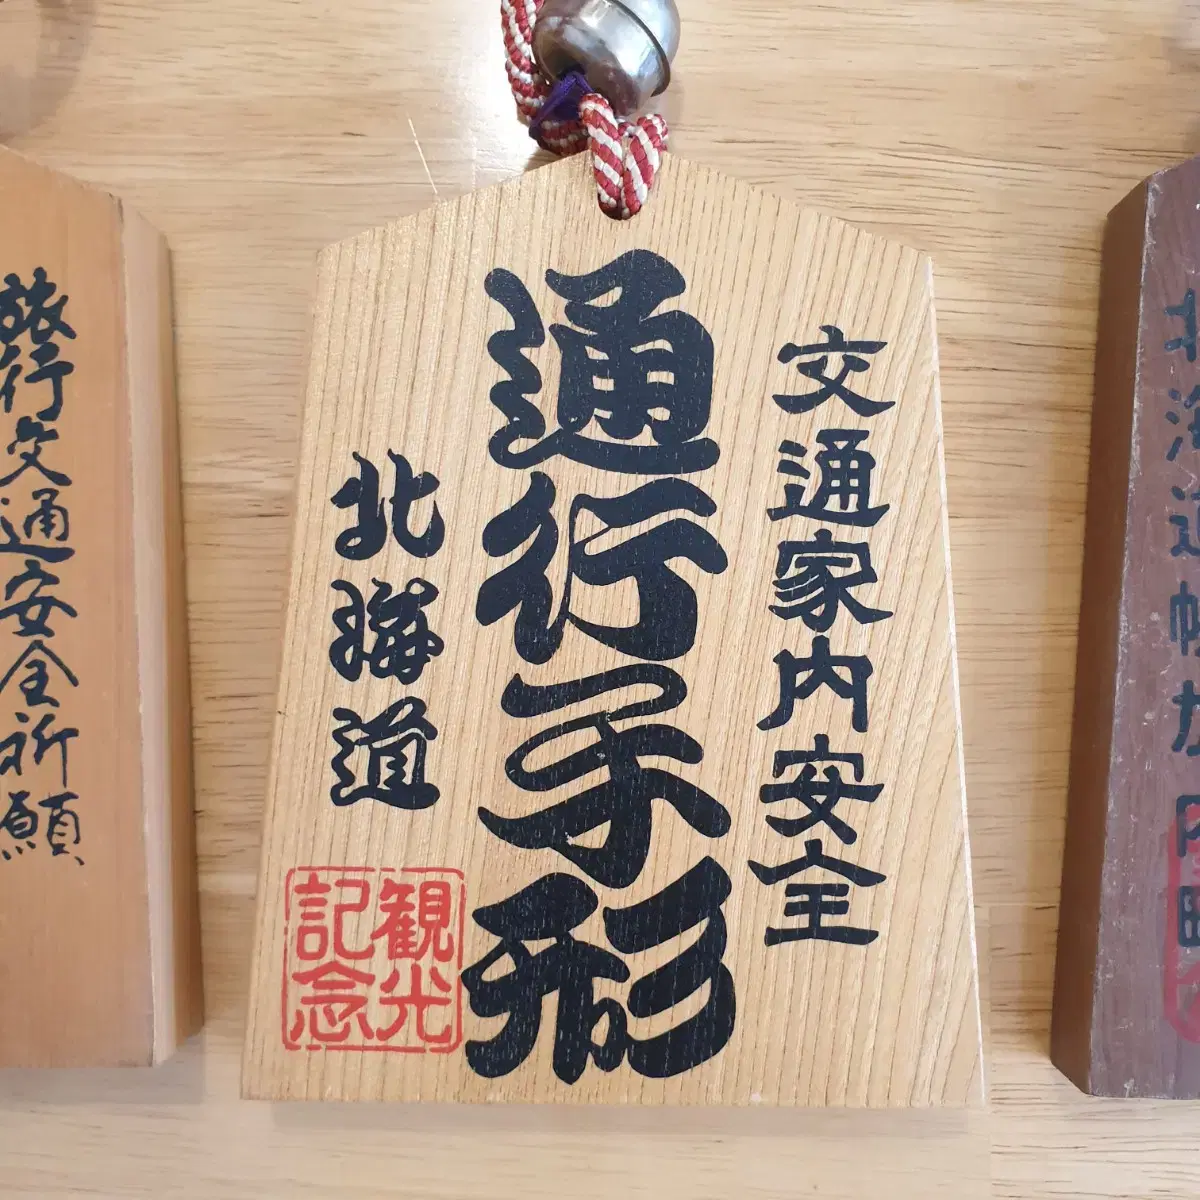 交通家内安全
通行手形
北海道
観光
記念
旅行交通安全祈願
北海道